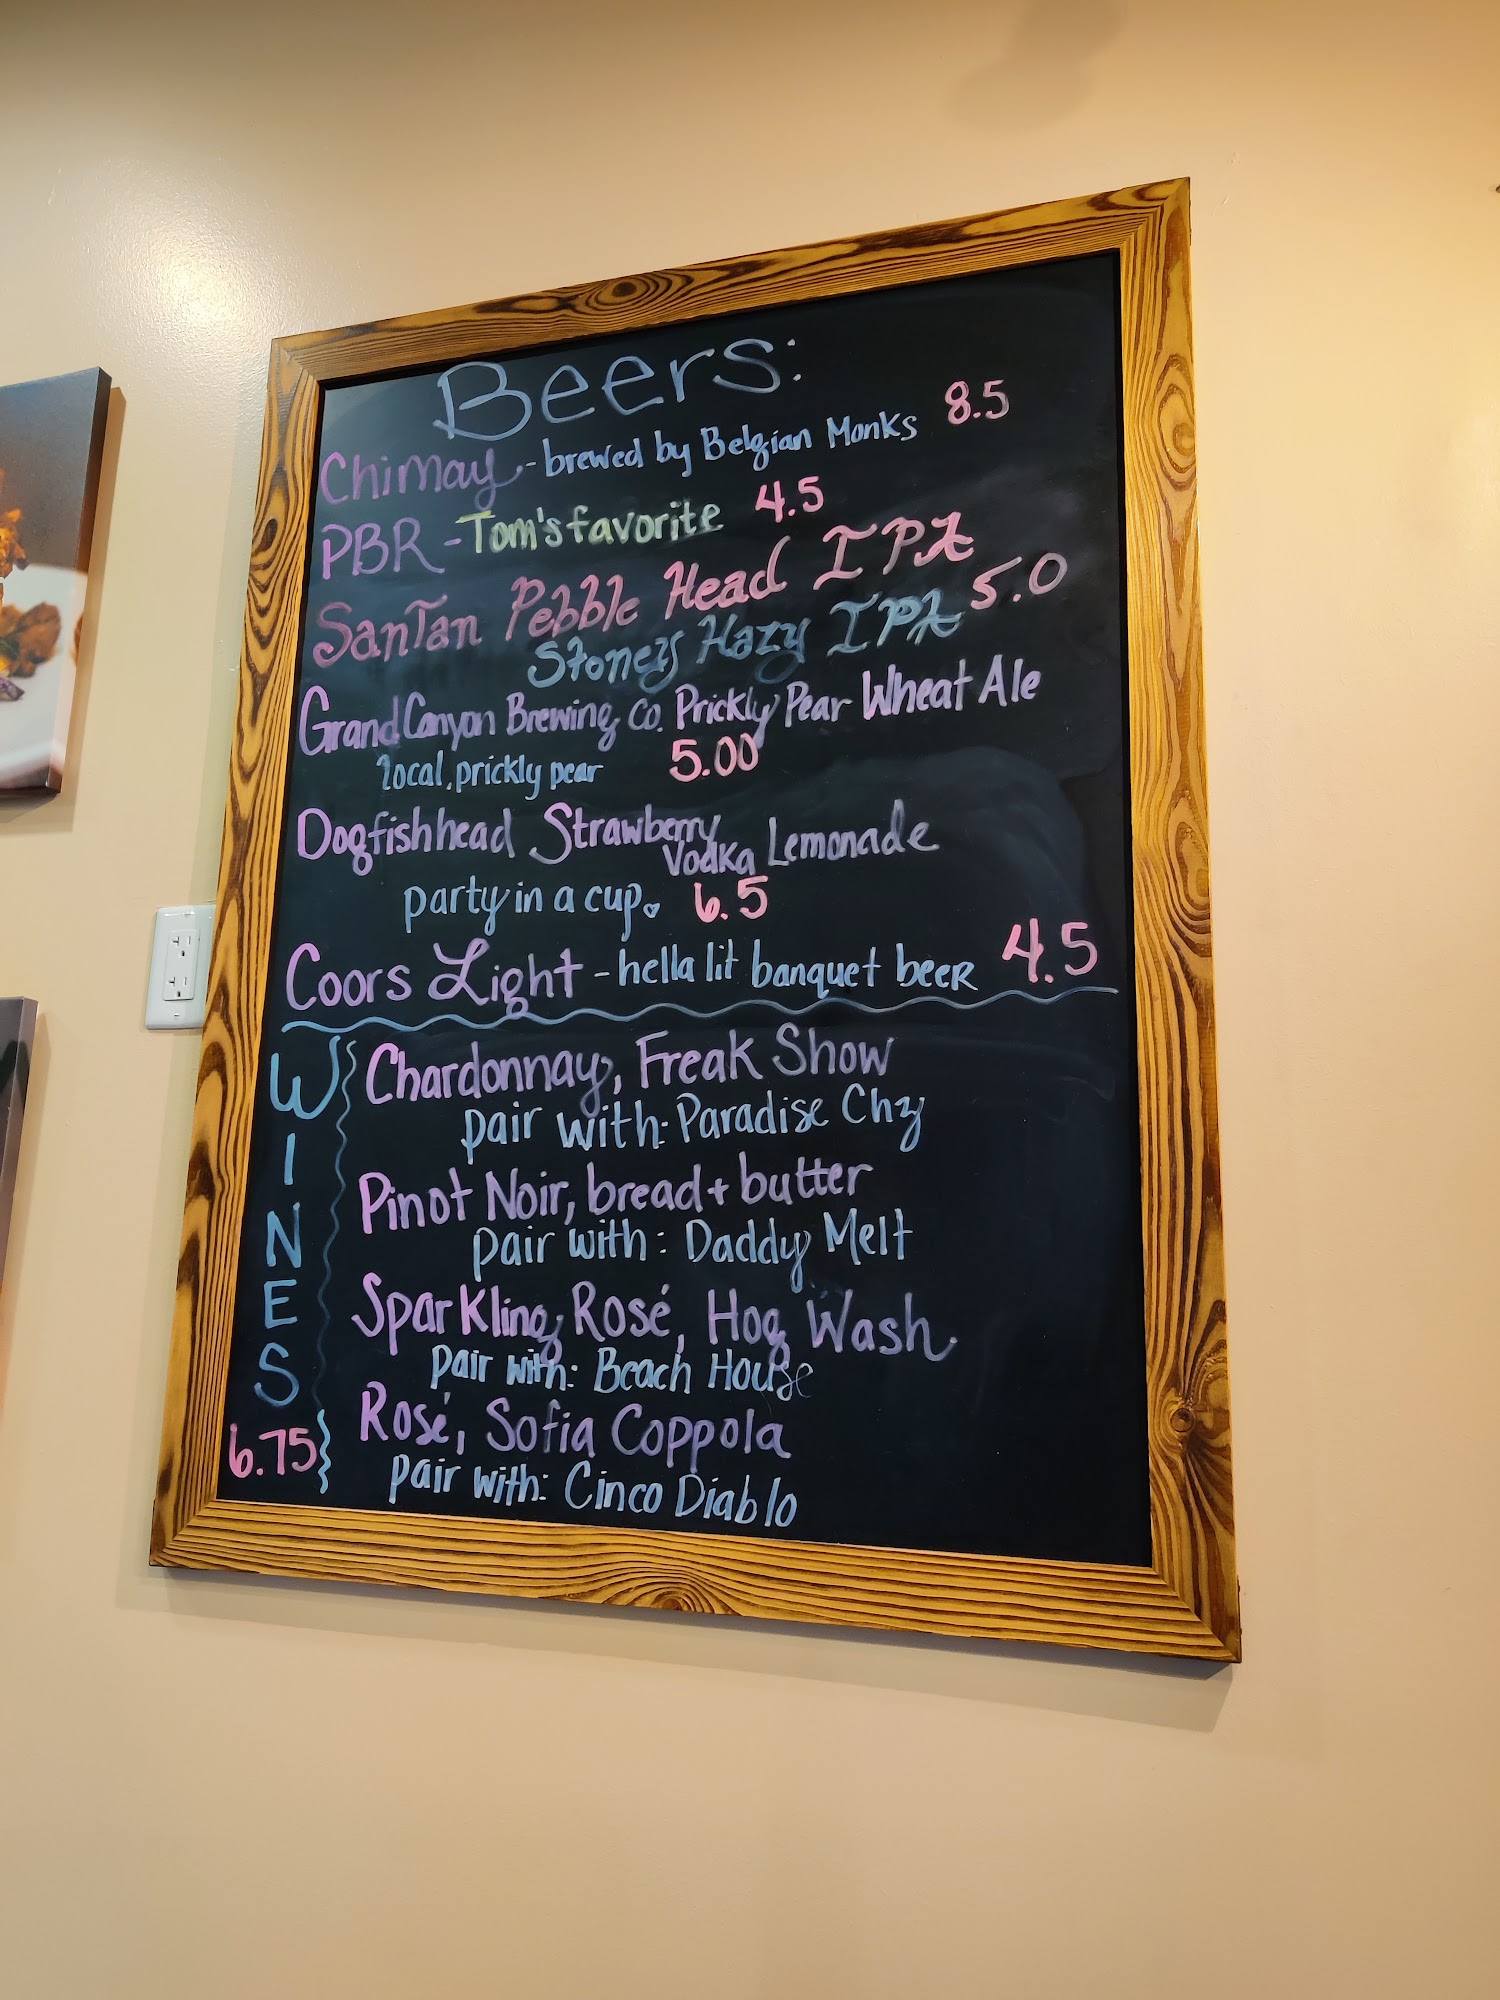 Beers:
Chimay - brewed by Belgian Monks 8.5
PBR - Tom's favorite 4.5
SanTan Pebble Head IPA
Stoney Hazy IPA 5.0
Grand Canyon Brewing Co. Prickly Pear Wheat Ale
local, prickly pear 5.00
Dogfishhead Strawberry Vodka Lemonade
party in a cup. 6.5
Coors Light - hella lit banquet beer 4.5
WINES
6.75
Chardonnay, Freak Show
pair with: Paradise Chz
Pinot Noir, bread + butter
pair with: Daddy Melt
Sparkling Rosé, Hog Wash
pair with: Beach House
Rosé, Sofia Coppola
pair with: Cinco Diablo